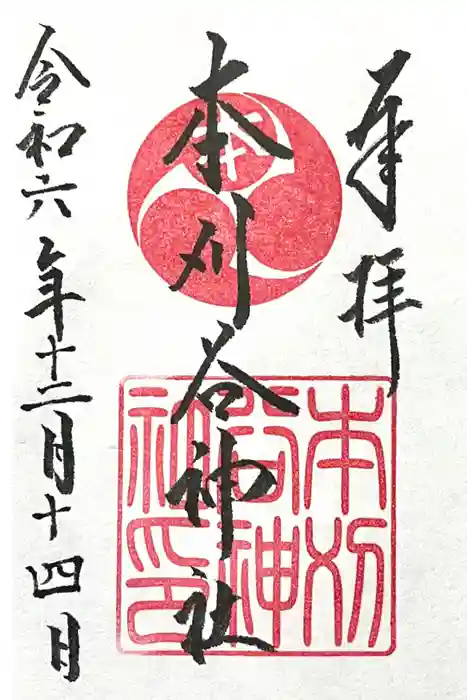 奉拝
本刈谷神社
本刈
谷神
社印
令和六年十二月十四日